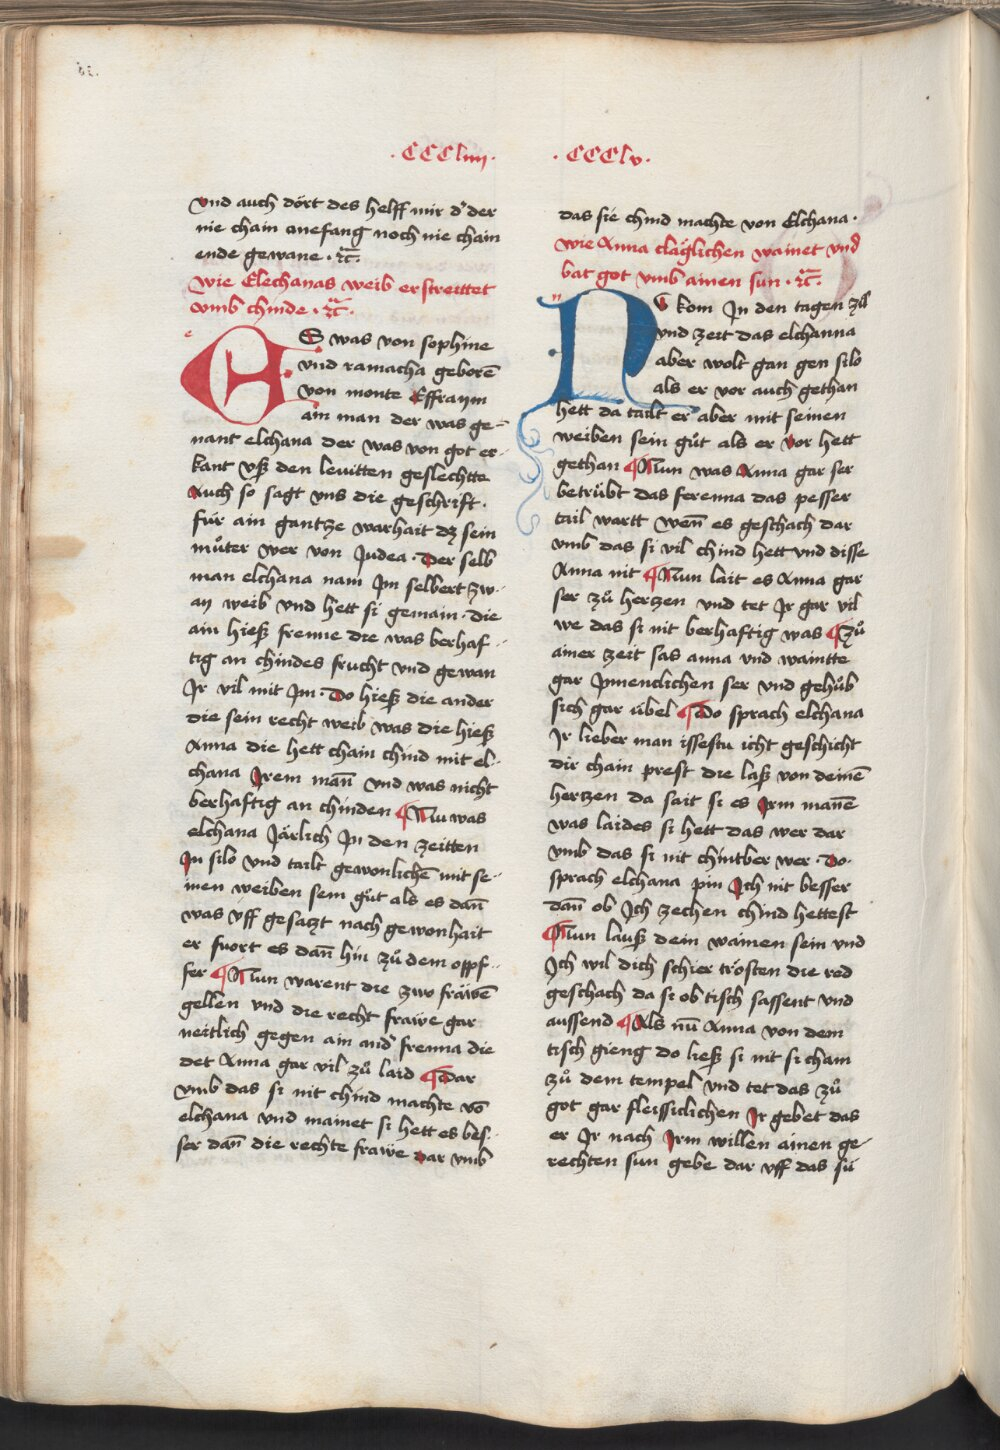 · CCCLiiii ·
vnd auch dört des helff mir d' der
nie chain anefang noch nie chain
ende gewane · ꝛc̄ ·
wie Elechanas weib erstreittet
vmb chinde · ꝛc̄ ·
ES was von sophine
vnd ramacha geborē
von monte Effraym
ain man der was ge-
nant elchana der was von got er-
kant vß den leuitten geslechtte
Auch so sagt vns die geschrift ·
für ain gantze warhait dz sein
můter wer von Judea · Der selb
man elchana nam Jm selbert zw-
ay weib vnd hett si gemain · die
ain hieß frenne die was berhaf-
tig an chindes frucht vnd gewan
Jr vil mit Jm · Do hieß die ander
die sein recht weib was die hieß
Anna die hett chain chind mit el-
chana Jrem mañ vnd was nicht
berhaftig an chinden ¶ Nu was
elchana Järlich Jn den zeitten
Jn silo vnd tailt gewonlichē mit se-
inen weiben sein gůt als es dañ
was vff gesatzt nach gewonhait
er fuort es dañ hin zů dem oppf-
fer ¶ Nun warent die zwo fräwē
gellen vnd die recht frawe gar
neitlich gegen ain and' frenna die
det Anna gar vil zů laid ¶ Dar
vmb das si nit chind machte vō
elchana vnd mainet si hett es bes-
ser dañ die rechte frawe dar vmb
· CCCLv ·
das sie chind machte von Elchana ·
wie Anna cläglichen wainet vnd
bat got vmb ainen sun · ꝛc̄ ·
NV kom Jn den tagen zil
vnd zeit das elchanna
aber wolt gan gen silo
als er vor auch gethan
hett da tailt er aber mit seinen
weiben sein gůt als er vor hett
gethan ¶ Nun was Anna gar ser
betrübt das ferenna das pesser
tail wartt weñ es geschach dar
vmb das si vil chind hett vnd disse
Anna nit ¶ Nun lait es Anna gar
ser zů hertzen vnd tet Jr gar vil
we das si nit berhaftig was ¶ Zů
ainer zeit sas anna vnd waintte
gar Jnnenclichen ser vnd gehůb
sich gar übel ¶ Do sprach elchana
Jr lieber man issestu icht geschicht
dir chain prest die laß von deinē
hertzen da sait si es Jrm manē
was laides si hett das wer dar
vmb das si nit chintber wer · Do ·
sprach elchana pin Jch nit besser
dañ ob Jch zechen chind hettest
¶ Nun lauß dein wainen sein vnd
Jch wil dich schier trösten die red
geschach da si ob tisch sassent vnd
aussend ¶ Als nū Anna von dem
tisch gieng do ließ si nit si cham
zů dem tempel vnd tet das zů
got gar fleissiclichen Jr gebet das
er Jr nach Jrm willen ainen ge-
rechten sun gebe dar vff das sü